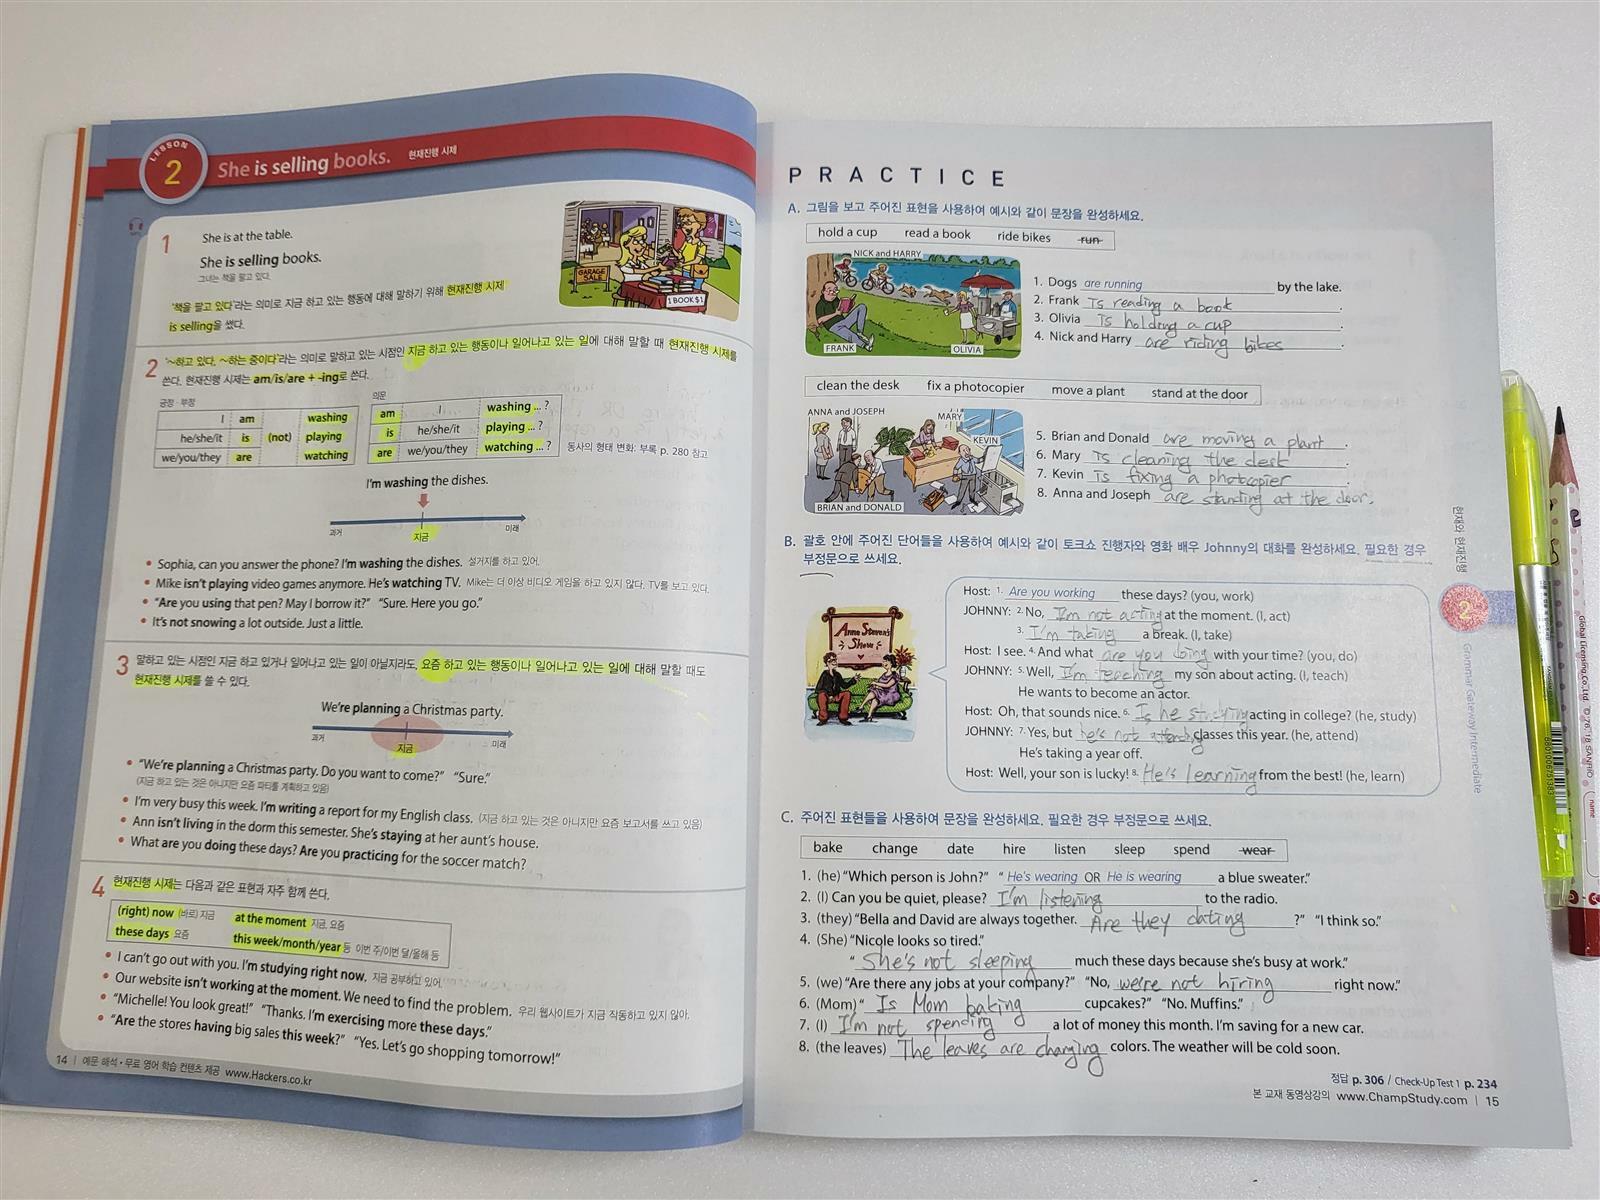 LESSON
2
She is selling books. 현재진행 시제
1
She is at the table.
She is selling books.
그녀는 책을 팔고 있다.
'책을 팔고 있다'라는 의미로 지금 하고 있는 행동에 대해 말하기 위해 현재진행 시제
is selling을 썼다.
GARAGE
SALE
1 BOOK $1
2
'~하고 있다, ~하는 중이다'라는 의미로 말하고 있는 시점인 지금 하고 있는 행동이나 일어나고 있는 일에 대해 말할 때 현재진행 시제를
쓴다. 현재진행 시제는 am/is/are + -ing로 쓴다.
긍정·부정
I am washing
he/she/it is (not) playing
we/you/they are watching
의문
am I washing ... ?
is he/she/it playing ... ?
are we/you/they watching ... ?
동사의 형태 변화: 부록 p. 280 참고
I'm washing the dishes.
과거 지금 미래
• Sophia, can you answer the phone? I'm washing the dishes. 설거지를 하고 있어.
• Mike isn't playing video games anymore. He's watching TV. Mike는 더 이상 비디오 게임을 하고 있지 않다. TV를 보고 있다.
• "Are you using that pen? May I borrow it?" "Sure. Here you go."
• It's not snowing a lot outside. Just a little.
3
말하고 있는 시점인 지금 하고 있거나 일어나고 있는 일이 아닐지라도, 요즘 하고 있는 행동이나 일어나고 있는 일에 대해 말할 때도
현재진행 시제를 쓸 수 있다.
We're planning a Christmas party.
과거 지금 미래
• "We're planning a Christmas party. Do you want to come?" "Sure."
(지금 하고 있는 것은 아니지만 요즘 파티를 계획하고 있음)
• I'm very busy this week. I'm writing a report for my English class. (지금 하고 있는 것은 아니지만 요즘 보고서를 쓰고 있음)
• Ann isn't living in the dorm this semester. She's staying at her aunt's house.
• What are you doing these days? Are you practicing for the soccer match?
4
현재진행 시제는 다음과 같은 표현과 자주 함께 쓴다.
(right) now (바로) 지금 at the moment 지금, 요즘
these days 요즘 this week/month/year 등 이번 주/이번 달/올해 등
• I can't go out with you. I'm studying right now. 지금 공부하고 있어.
• Our website isn't working at the moment. We need to find the problem. 우리 웹사이트가 지금 작동하고 있지 않아.
• "Michelle! You look great!" "Thanks. I'm exercising more these days."
• "Are the stores having big sales this week?" "Yes. Let's go shopping tomorrow!"
14 | 예문 해석·무료 영어 학습 컨텐츠 제공 www.Hackers.co.kr
PRACTICE
A. 그림을 보고 주어진 표현을 사용하여 예시와 같이 문장을 완성하세요.
hold a cup read a book ride bikes run
NICK and HARRY
FRANK
OLIVIA
1. Dogs are running by the lake.
2. Frank is reading a book.
3. Olivia is holding a cup.
4. Nick and Harry are riding bikes.
clean the desk fix a photocopier move a plant stand at the door
ANNA and JOSEPH
MARY
KEVIN
BRIAN and DONALD
5. Brian and Donald are moving a plant.
6. Mary is cleaning the desk.
7. Kevin is fixing a photocopier.
8. Anna and Joseph are standing at the door.
B. 괄호 안에 주어진 단어들을 사용하여 예시와 같이 토크쇼 진행자와 영화 배우 Johnny의 대화를 완성하세요. 필요한 경우
부정문으로 쓰세요.
Anne Steven's
Show
Host: 1. Are you working these days? (you, work)
JOHNNY: 2. No, I'm not acting at the moment. (I, act)
3. I'm taking a break. (I, take)
Host: I see. 4. And what are you doing with your time? (you, do)
JOHNNY: 5. Well, I'm teaching my son about acting. (I, teach)
He wants to become an actor.
Host: Oh, that sounds nice. 6. Is he studying acting in college? (he, study)
JOHNNY: 7. Yes, but he's not attending classes this year. (he, attend)
He's taking a year off.
Host: Well, your son is lucky! 8. He's learning from the best! (he, learn)
C. 주어진 표현들을 사용하여 문장을 완성하세요. 필요한 경우 부정문으로 쓰세요.
bake change date hire listen sleep spend wear
1. (he) "Which person is John?" " He's wearing OR He is wearing a blue sweater."
2. (I) Can you be quiet, please? I'm listening to the radio.
3. (they) "Bella and David are always together. Are they dating ?" "I think so."
4. (She) "Nicole looks so tired."
" She's not sleeping much these days because she's busy at work."
5. (we) "Are there any jobs at your company?" "No, we're not hiring right now."
6. (Mom) " Is Mom baking cupcakes?" "No. Muffins."
7. (I) I'm not spending a lot of money this month. I'm saving for a new car.
8. (the leaves) The leaves are changing colors. The weather will be cold soon.
정답 p. 306 / Check-Up Test 1 p. 234
본 교재 동영상강의 www.ChampStudy.com | 15
현재와 현재진행
2
Grammar Gateway Intermediate
8801006751383
Global Licensing.Co.,Ltd. ©'76,'18 SANRIO
name